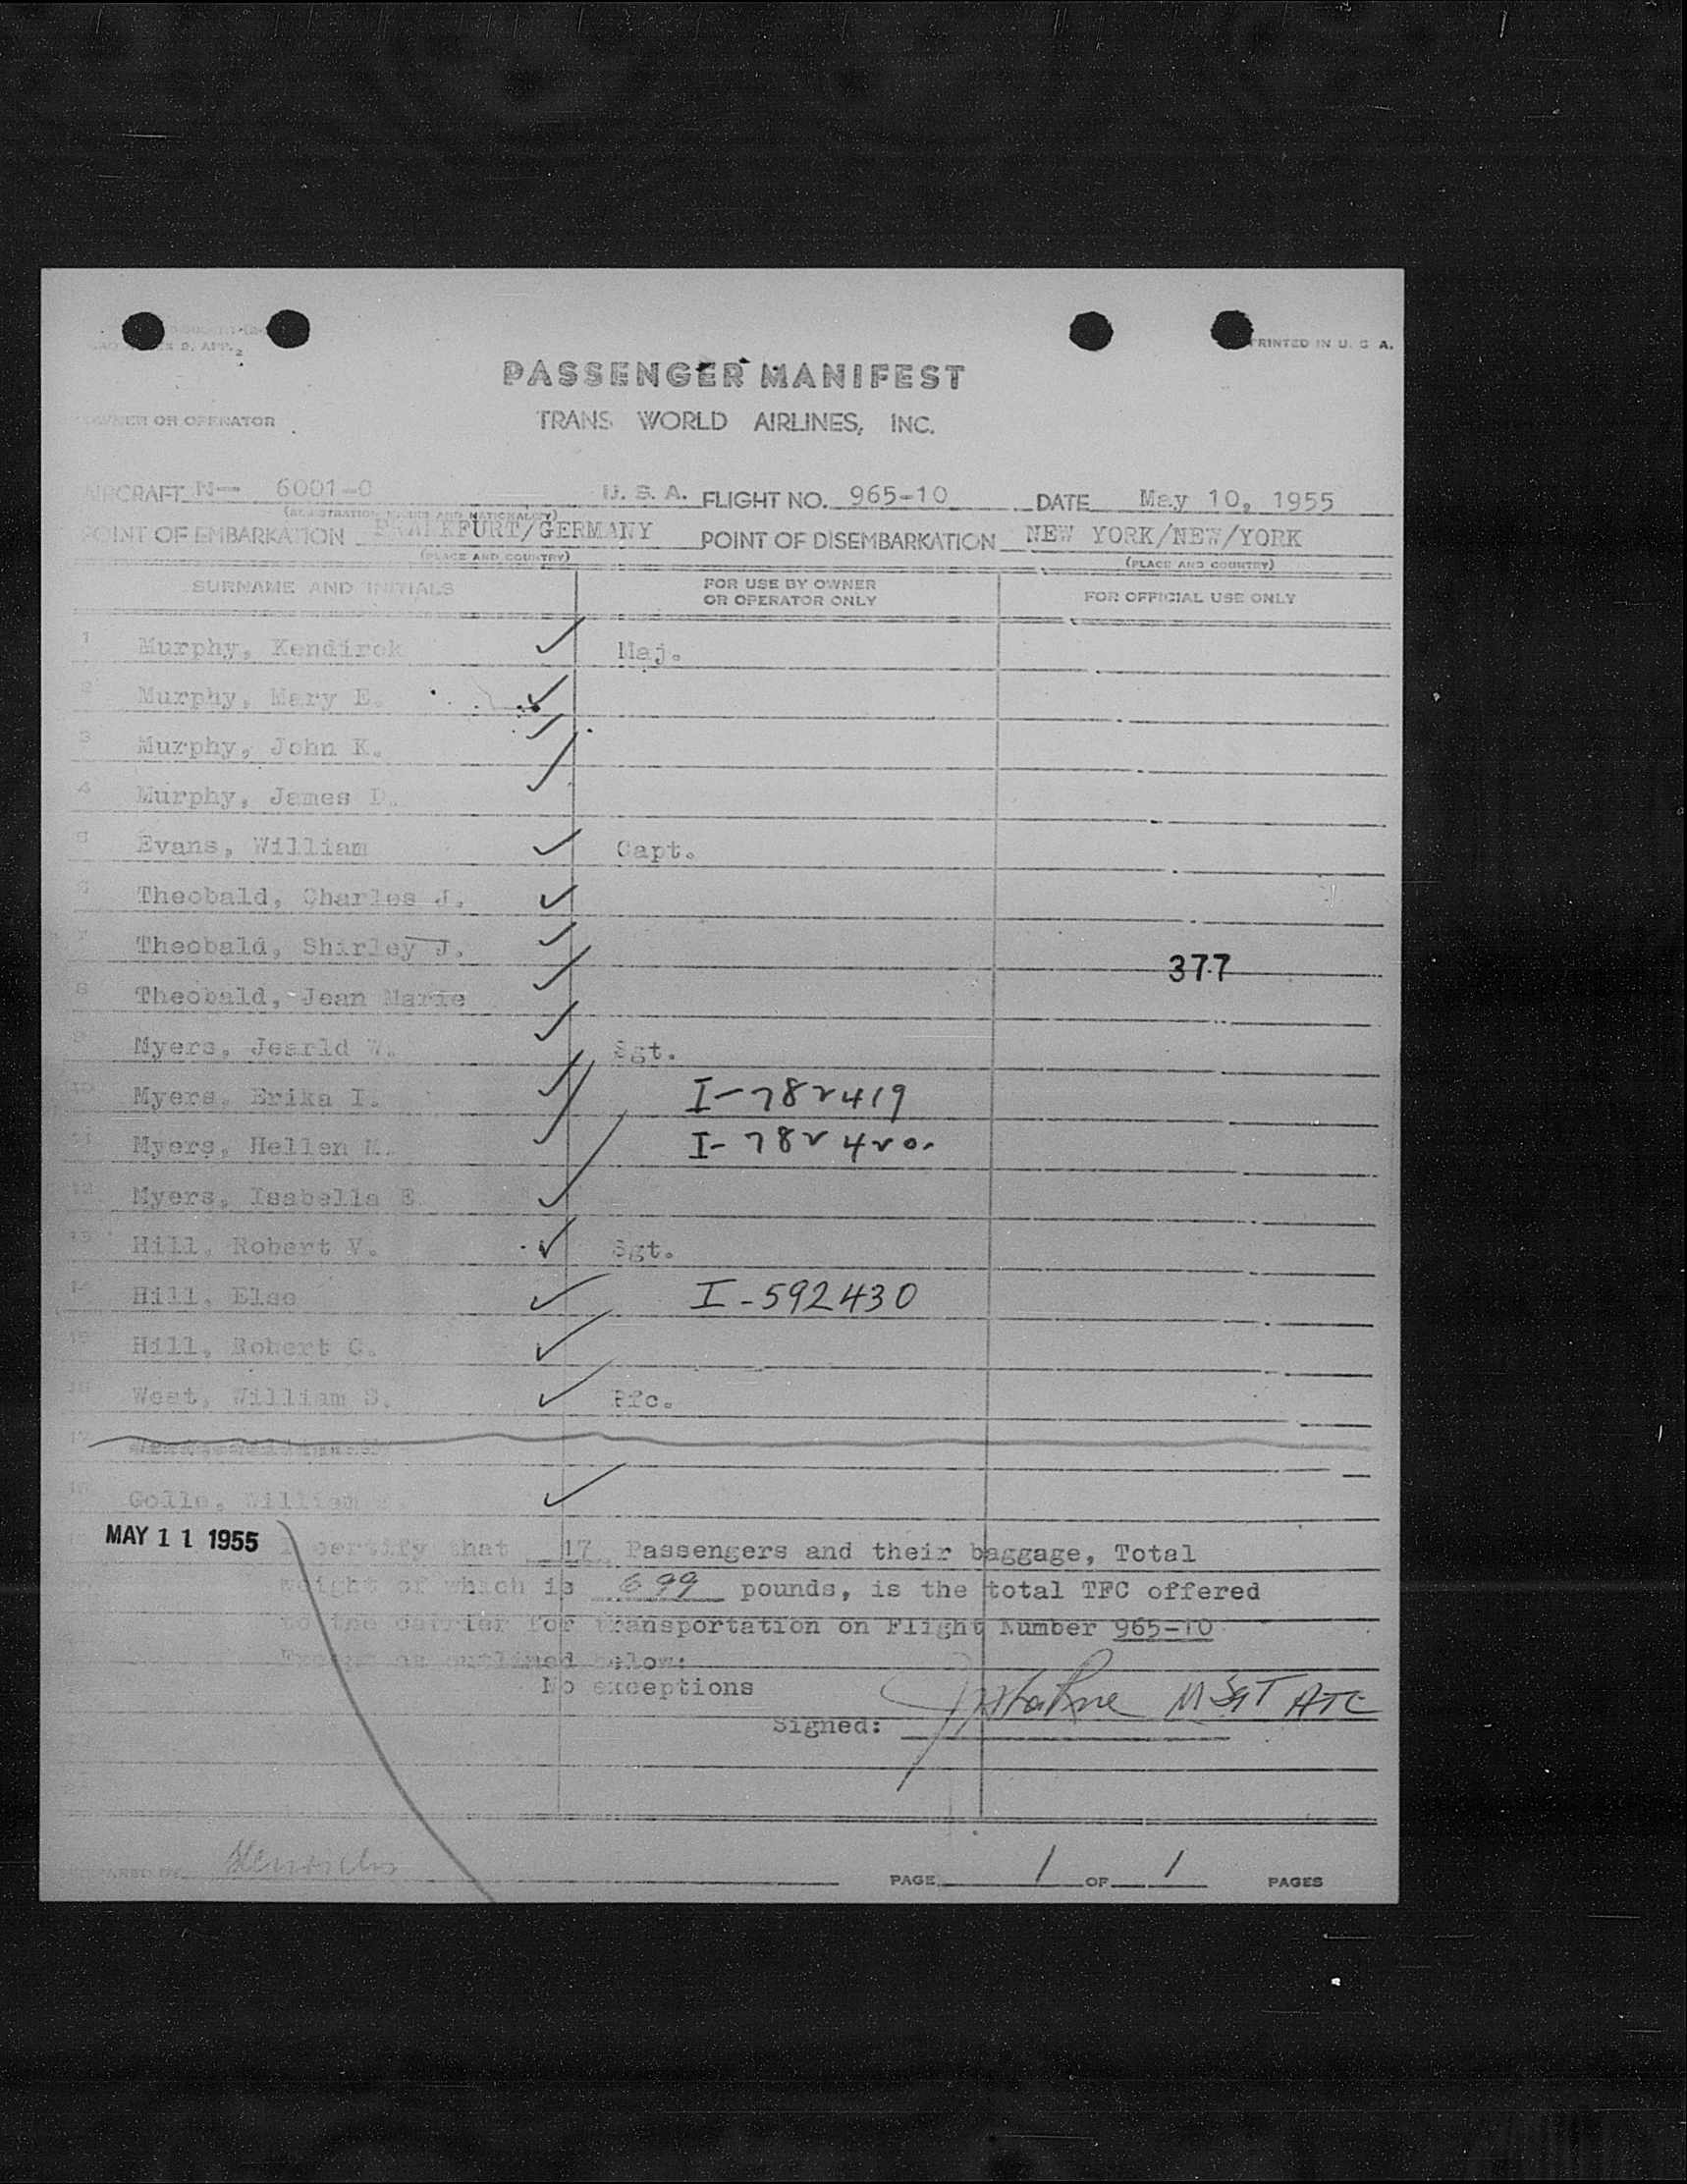 PRINTED IN U. S. A.
PASSENGER MANIFEST
OWNER OR OPERATOR
TRANS WORLD AIRLINES, INC.
AIRCRAFT N— 6001-C U. S. A. FLIGHT NO. 965-10 DATE May 10, 1955
(REGISTRATION MARKS AND NATIONALITY)
POINT OF EMBARKATION FRANKFURT/GERMANY POINT OF DISEMBARKATION NEW YORK/NEW/YORK
(PLACE AND COUNTRY) (PLACE AND COUNTRY)
SURNAME AND INITIALS FOR USE BY OWNER OR OPERATOR ONLY FOR OFFICIAL USE ONLY
1 Murphy, Kendirok ✓ Maj.
2 Murphy, Mary E. ✓
3 Murphy, John K. ✓
4 Murphy, James D. ✓
5 Evans, William ✓ Capt.
6 Theobald, Charles J. ✓
7 Theobald, Shirley J. ✓ 377
8 Theobald, Jean Marie ✓
9 Myers, Jearld W. ✓ Sgt.
10 Myers, Erika I. ✓ I-782419
11 Myers, Hellen M. ✓ I-782420
12 Myers, Isabella E ✓
13 Hill, Robert V. ✓ Sgt.
14 Hill, Else ✓ I-592430
15 Hill, Robert G. ✓
16 West, William S. ✓ Pfc.
17
18 Golla, William ✓
MAY 11 1955
I certify that 17 Passengers and their baggage, Total
weight of which is 699 pounds, is the total TFC offered
to the carrier for transportation on Flight Number 965-10
Except as outlined below:
No exceptions
Signed: M SGT ATC
PREPARED BY PAGE 1 OF 1 PAGES